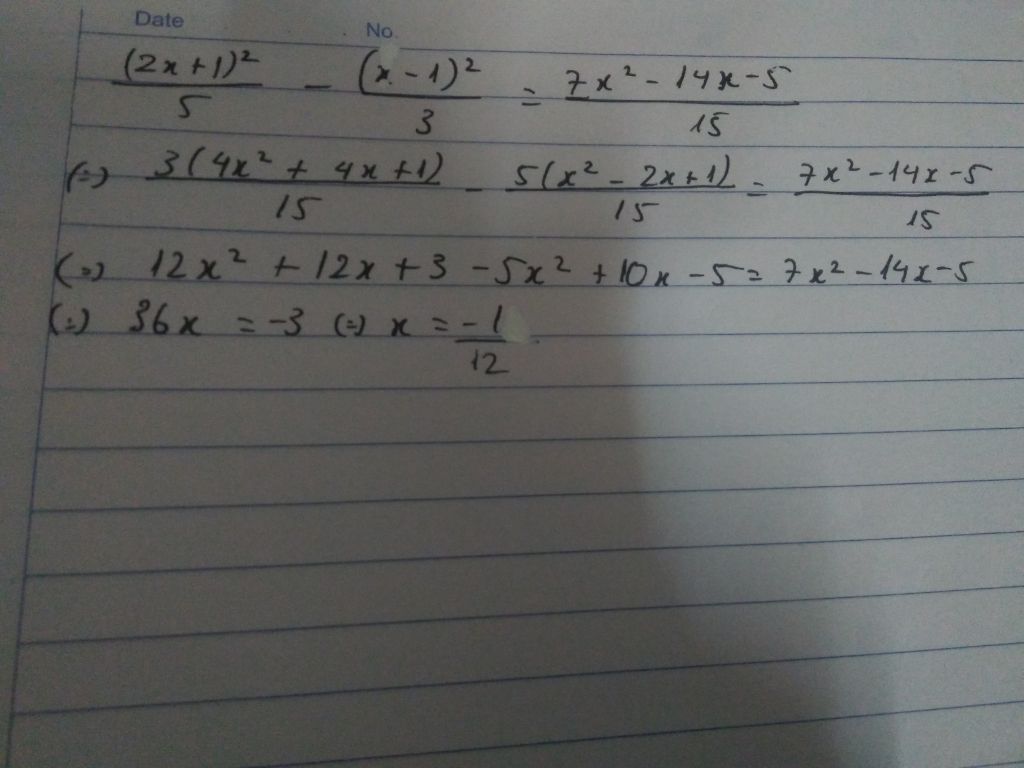 Date No.
(2x+1)²/5 - (x-1)²/3 = 7x² - 14x - 5/15
(=) 3(4x² + 4x + 1)/15 - 5(x² - 2x + 1)/15 = 7x² - 14x - 5/15
(=) 12x² + 12x + 3 - 5x² + 10x - 5 = 7x² - 14x - 5
(=) 36x = -3 (=) x = -1/12